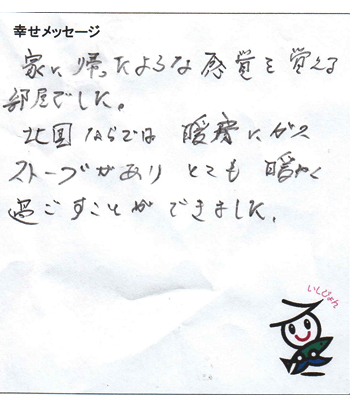 幸せメッセージ
家に帰ったような感覚を覚える
部屋でした。
北国ならでは 暖房にガス
ストーブがあり とても 暖かく
過ごすことができました。
いしぴょん